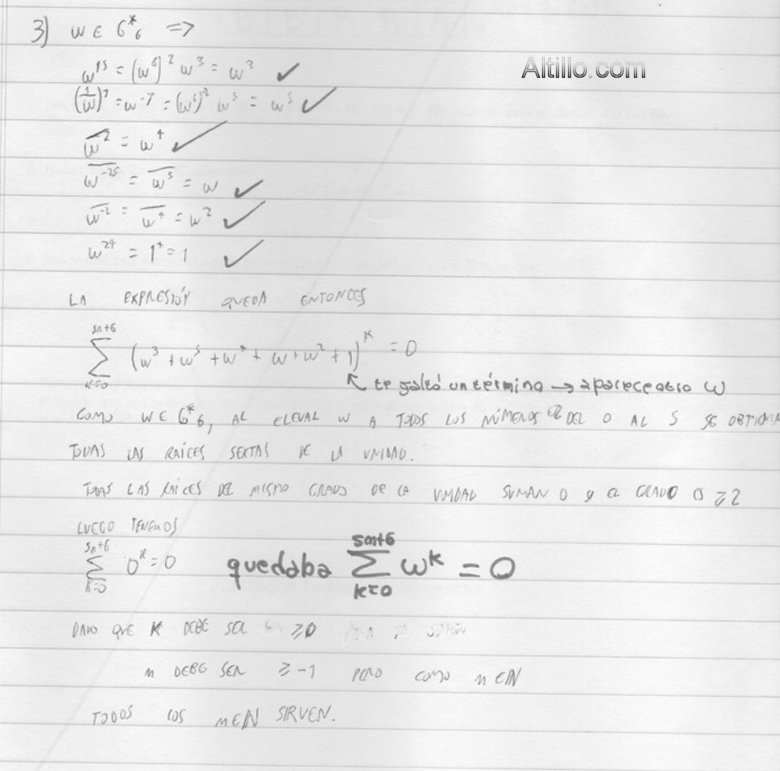 3) w ∈ G*₆ ⇒
Altillo.com
w¹⁵ = (w⁶)² w³ = w³ ✓
(1/w)⁷ = w⁻⁷ = (w⁶)⁻² w⁵ = w⁵ ✓
w̅² = w⁴ ✓
w̅⁻²⁵ = w̅⁵ = w ✓
w̅⁻² = w̅⁴ = w² ✓
w²⁴ = 1⁴ = 1 ✓
LA EXPRESIÓN QUEDA ENTONCES
∑_{k=0}^{5n+6} (w³ + w⁵ + w⁴ + w + w² + 1)^k = 0
↖ te faltó un término → aparece otro w
COMO w ∈ G*₆, AL ELEVAR w A TODOS LOS NÚMEROS DEL 0 AL 5 SE
TODAS LAS RAÍCES SEXTAS DE LA UNIDAD.
TODAS LAS RAÍCES DEL MISMO GRADO DE LA UNIDAD SUMAN 0 GRADO ≥ 2
LUEGO TENEMOS
∑_{k=0}^{5n+6} 0^k = 0 quedaba ∑_{k=0}^{5n+6} w^k = 0
DADO QUE K DEBE SER ≥ 0
n DEBE SER ≥ -1 PERO COMO n ∈ ℕ
TODOS LOS n ∈ ℕ SIRVEN.